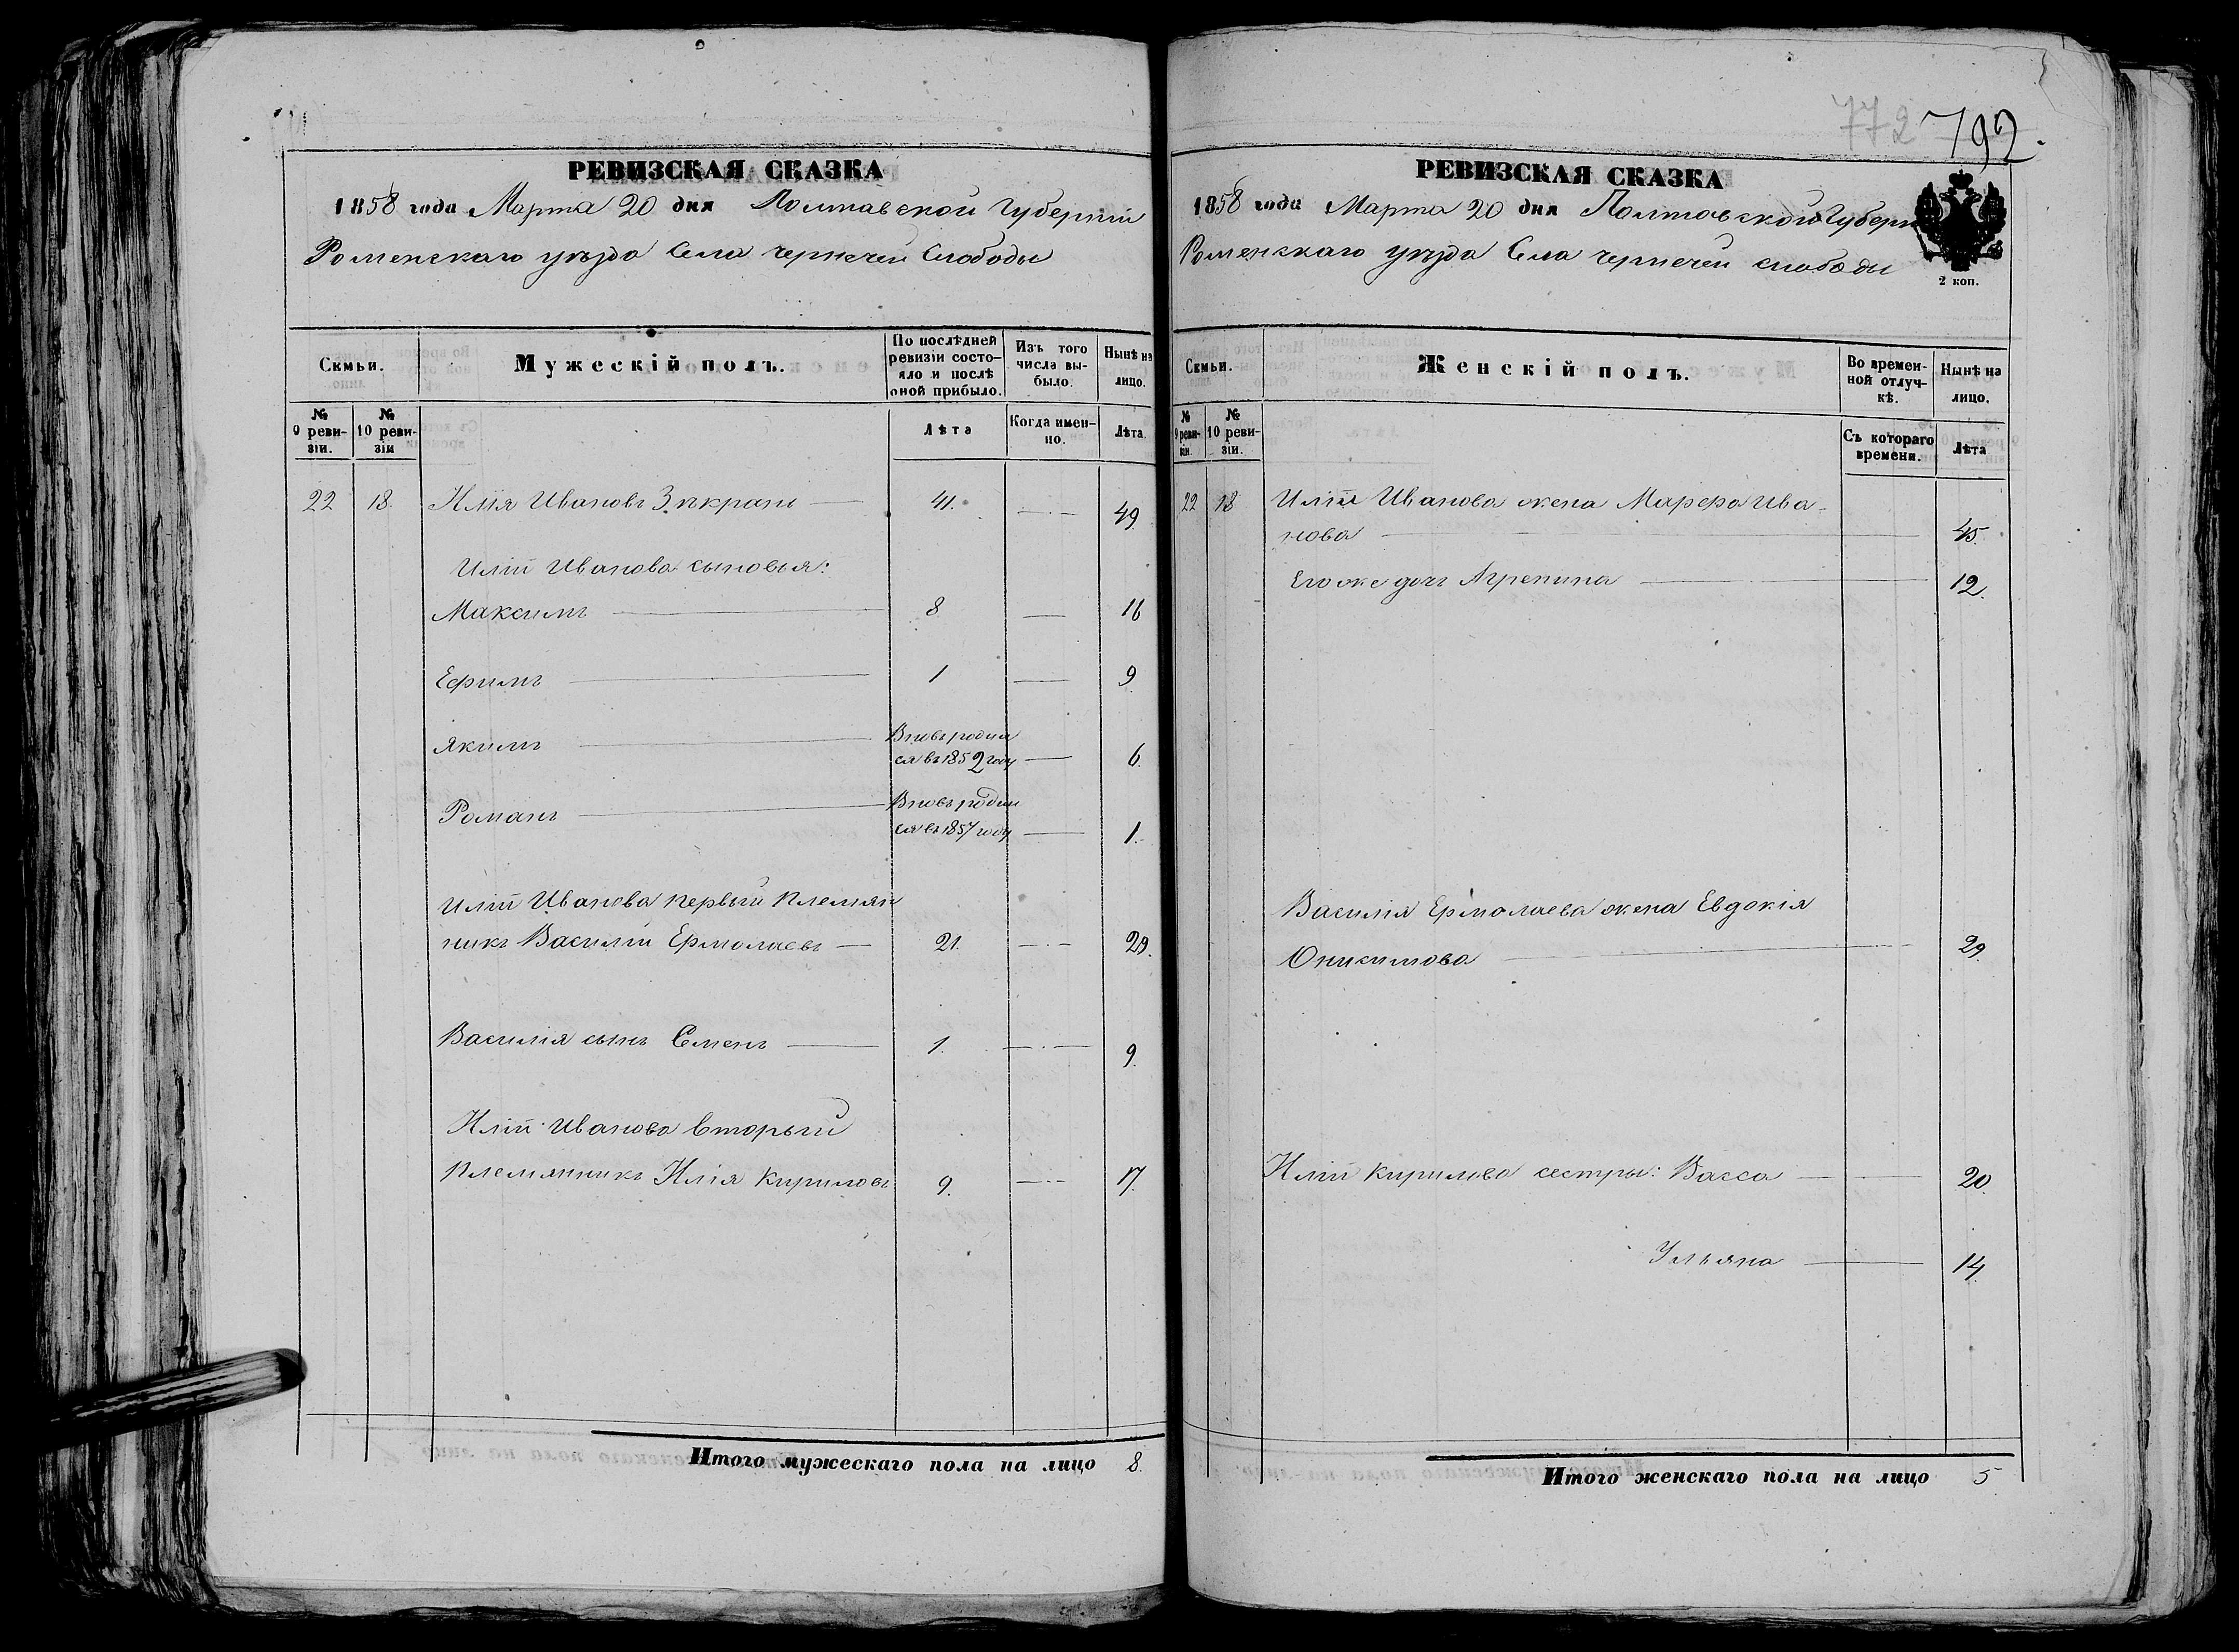 772 792.
РЕВИЗСКАЯ СКАЗКА
1858 года Марта 20 дня Полтавской Губерніи
Роменскаго уѣзда Села Чернечей Слободы
Семьи.
Мужескій полъ.
По послѣдней ревизіи состояло и послѣ оной прибыло.
Изъ того числа выбыло.
Нынѣ на лицо.
№ 9 ревизіи.
№ 10 ревизіи
Лѣта
Когда именно.
Лѣта.
22 18. Илія Ивановъ 41. 49.
Иліи Иванова сыновья:
Максимъ 8 16
Ефимъ 1 9
Якимъ Вновь родился въ 1852 году 6.
Романъ Вновь родился въ 1857 году 1.
Иліи Иванова первый племян
никъ Василій Ермолаевъ 21. 29.
Василія сынъ Семенъ 1. 9.
Иліи Иванова вторый
племянникъ Илія Кириловъ 9. 17.
Итого мужескаго пола на лицо 8.
РЕВИЗСКАЯ СКАЗКА
1858 года Марта 20 дня Полтавской Губерн
Роменскаго уѣзда Села Чернечей слободы
2 коп.
Семьи.
Женскій полъ.
Во временной отлучкѣ.
Нынѣ на лицо.
№ 9 ревизіи.
№ 10 ревизіи.
Съ котораго времени.
Лѣта
22 18 Иліи Иванова жена Марфа Ива-
нова 45.
Его же дочь Агрепина 12.
Василія Ермолаева жена Евдокія
29.
Иліи Кирилова сестры: Васса 20.
Ульяна 14.
Итого женскаго пола на лицо 5